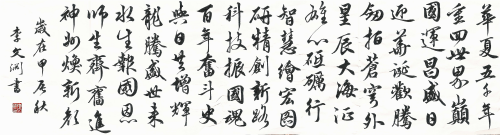 華夏五千年
重四世界巔
國運昌盛日
迎誕歡騰
劍指蒼穹外
星辰大海征
雄心礪行
智慧繪宏圖
研精創新路
科技振國魂
百年奮斗史
與日共增輝
龍騰盛世来
水生報國恩
師生齊奮進
神州煥新顏
歲在甲辰秋
李文淵書